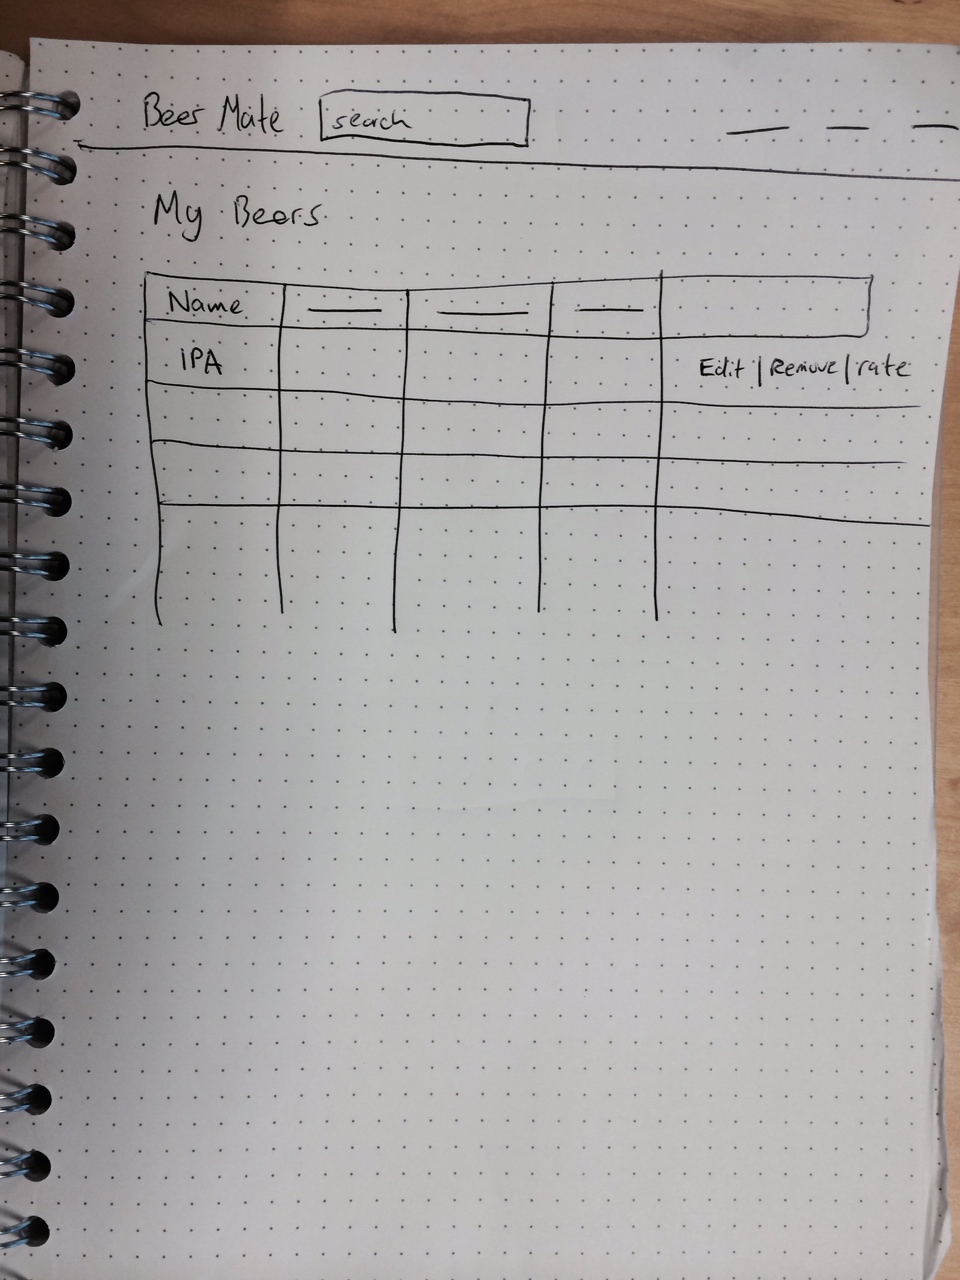 Beer Mate search
My Beers
Name
IPA Edit | Remove | rate